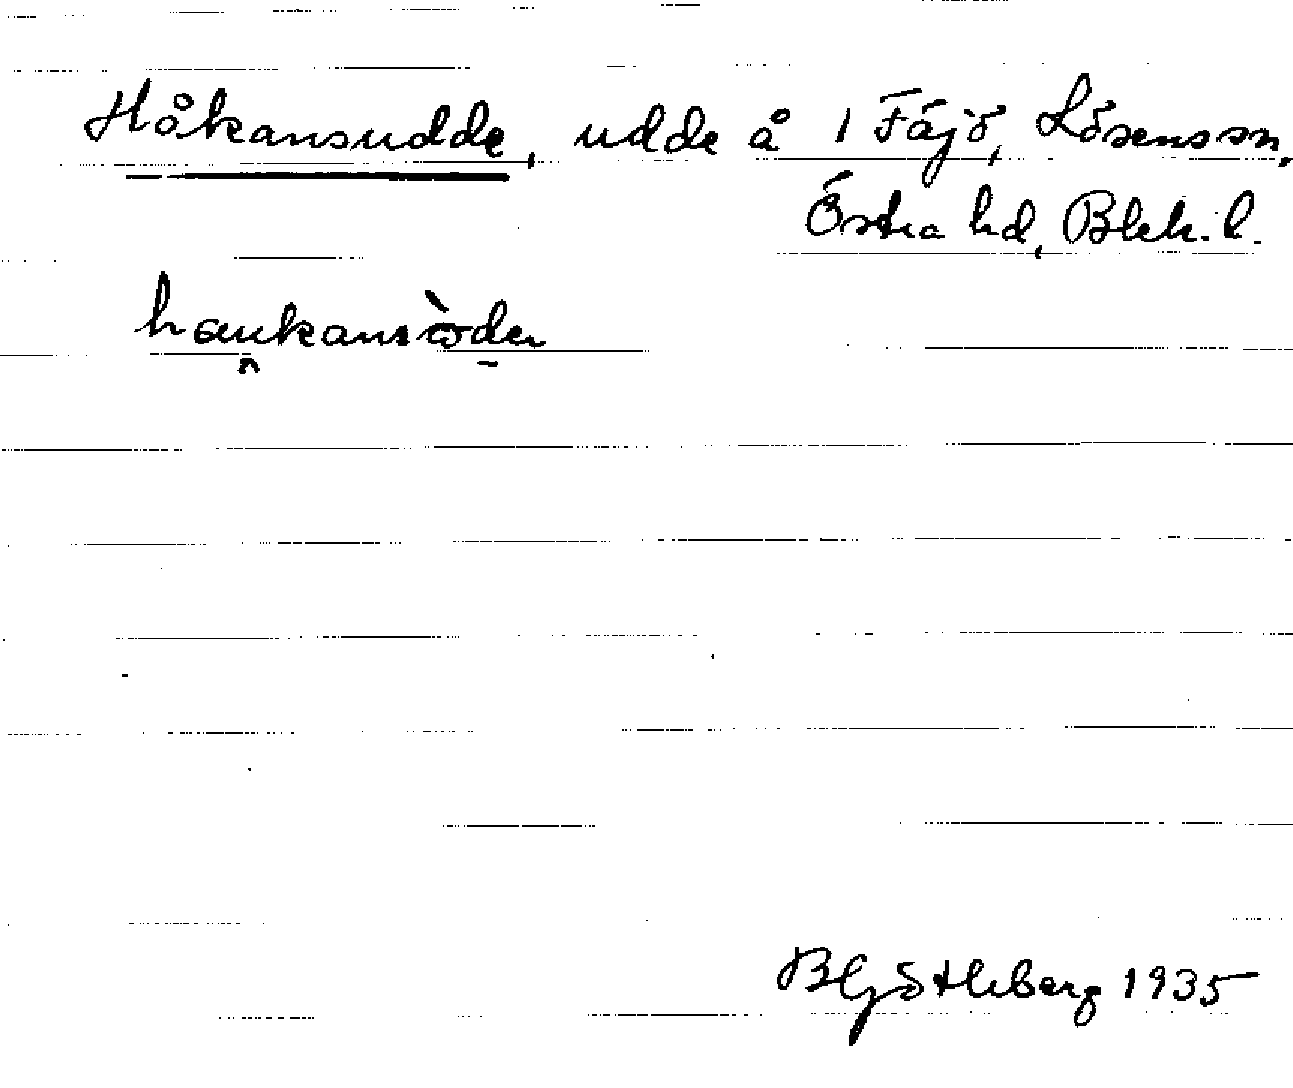 Håkansudde, udde å 1 Fäjö, Lösens sn,
Östra hd, Blek. l.
haukansòden
BGötleberg 1935